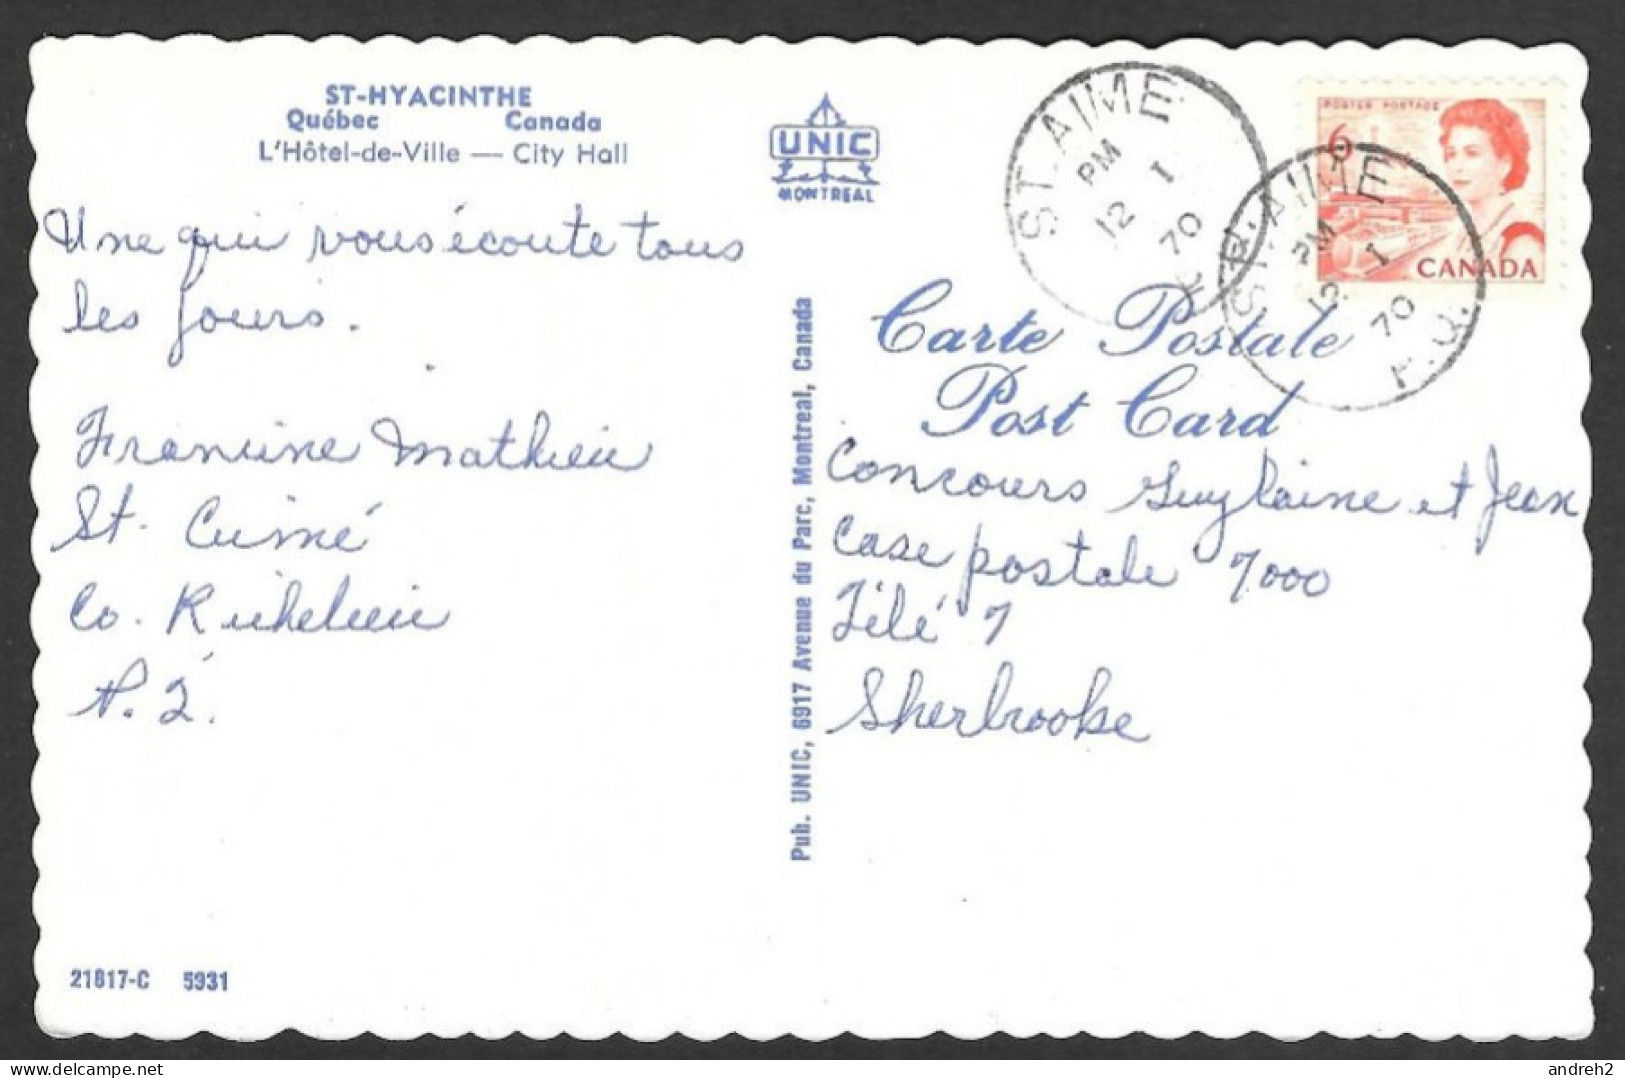 ST-HYACINTHE
Québec Canada
L'Hôtel-de-Ville — City Hall
UNIC
MONTREAL
Une qui vous écoute tous
les jours.
Francine Mathieu
St. Aimé
Co. Richelieu
P.Q.
21817-C 5931
Pub. UNIC, 6917 Avenue du Parc, Montreal, Canada
ST. AIME
PM
12 I
70
P.Q.
ST. AIME
PM
I
70
P.Q.
POSTES POSTAGE
6
CANADA
Carte Postale
Post Card
Concours Guylaine et Jean
Case postale 7000
Télé 7
Sherbrooke
delcampe.net
andreh2